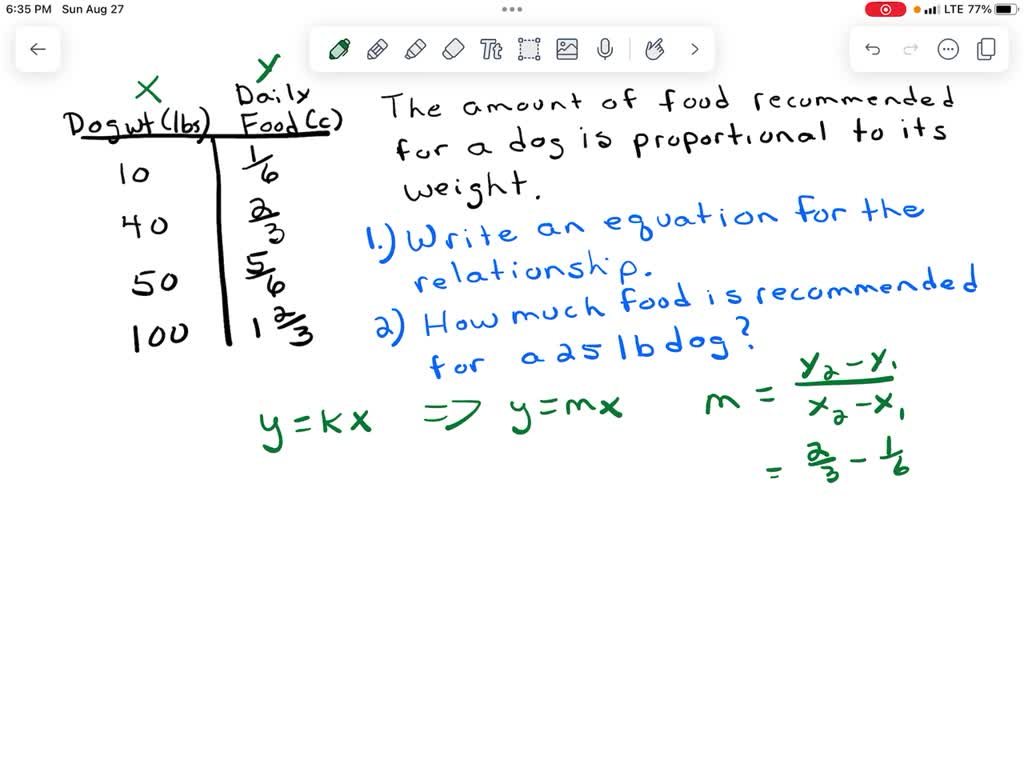 6:35 PM Sun Aug 27
LTE 77%
Tt
X Y
Dog wt (lbs) Daily Food (c)
10 1/6
40 2/3
50 5/6
100 1 2/3
The amount of food recommended
for a dog is proportional to its
weight.
1.) Write an equation for the
relationship.
2) How much food is recommended
for a 25 lb dog?
y = kx => y = mx
m = y₂ - y₁ / x₂ - x₁
= 2/3 - 1/6